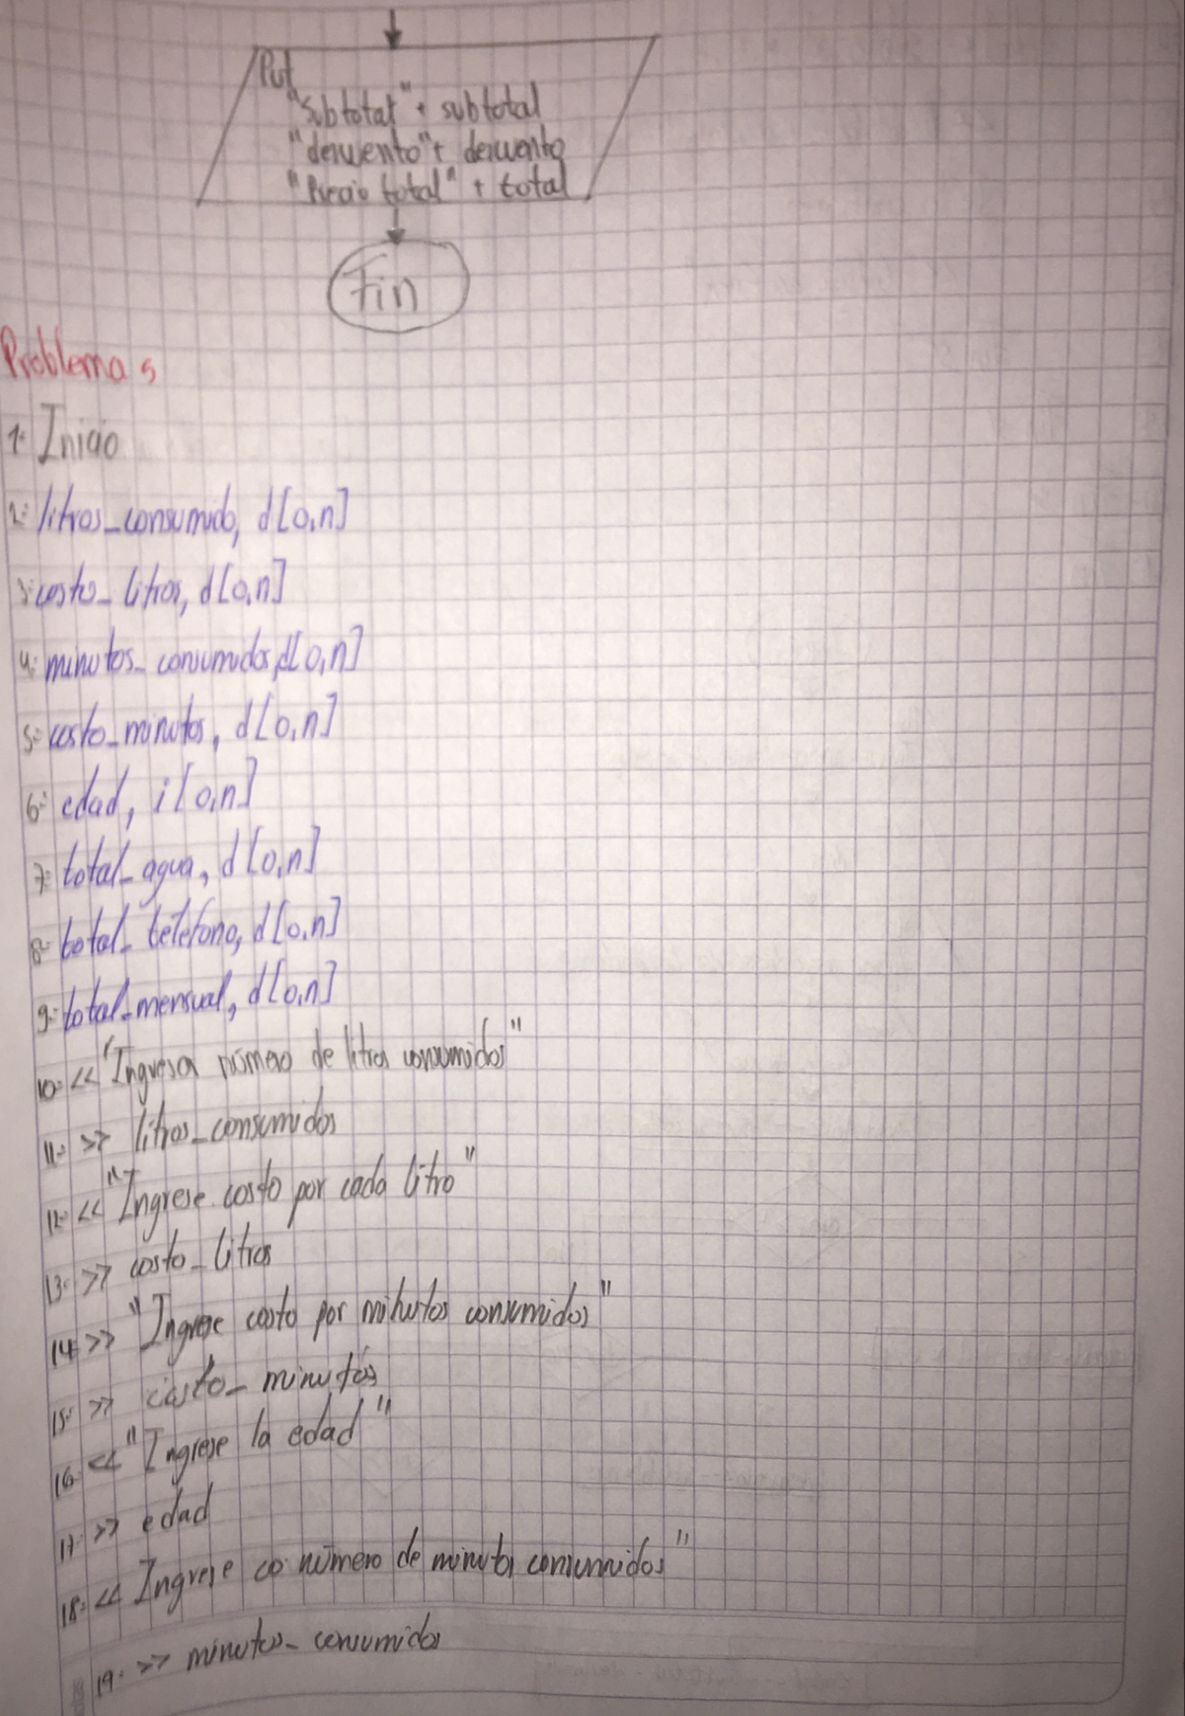 Put
"Subtotal" + subtotal
"descuento" + descuento
"Precio total" + total
Fin
Problema 5
1- Inicio
2- litros_consumido, d[0,n]
3- costo_litros, d[0,n]
4- minutos_consumidos, d[0,n]
5- costo_minutos, d[0,n]
6- edad, i[0,n]
7- total_agua, d[0,n]
8- total_telefono, d[0,n]
9- total_mensual, d[0,n]
10- << "Ingresa número de litros consumidos"
11- >> litros_consumidos
12- << "Ingrese costo por cada litro"
13- >> costo_litros
14- >> "Ingrese costo por minutos consumidos"
15- >> costo_minutos
16- << "Ingrese la edad"
17- >> edad
18- << Ingrese número de minutos consumidos"
19- >> minutos_consumidos